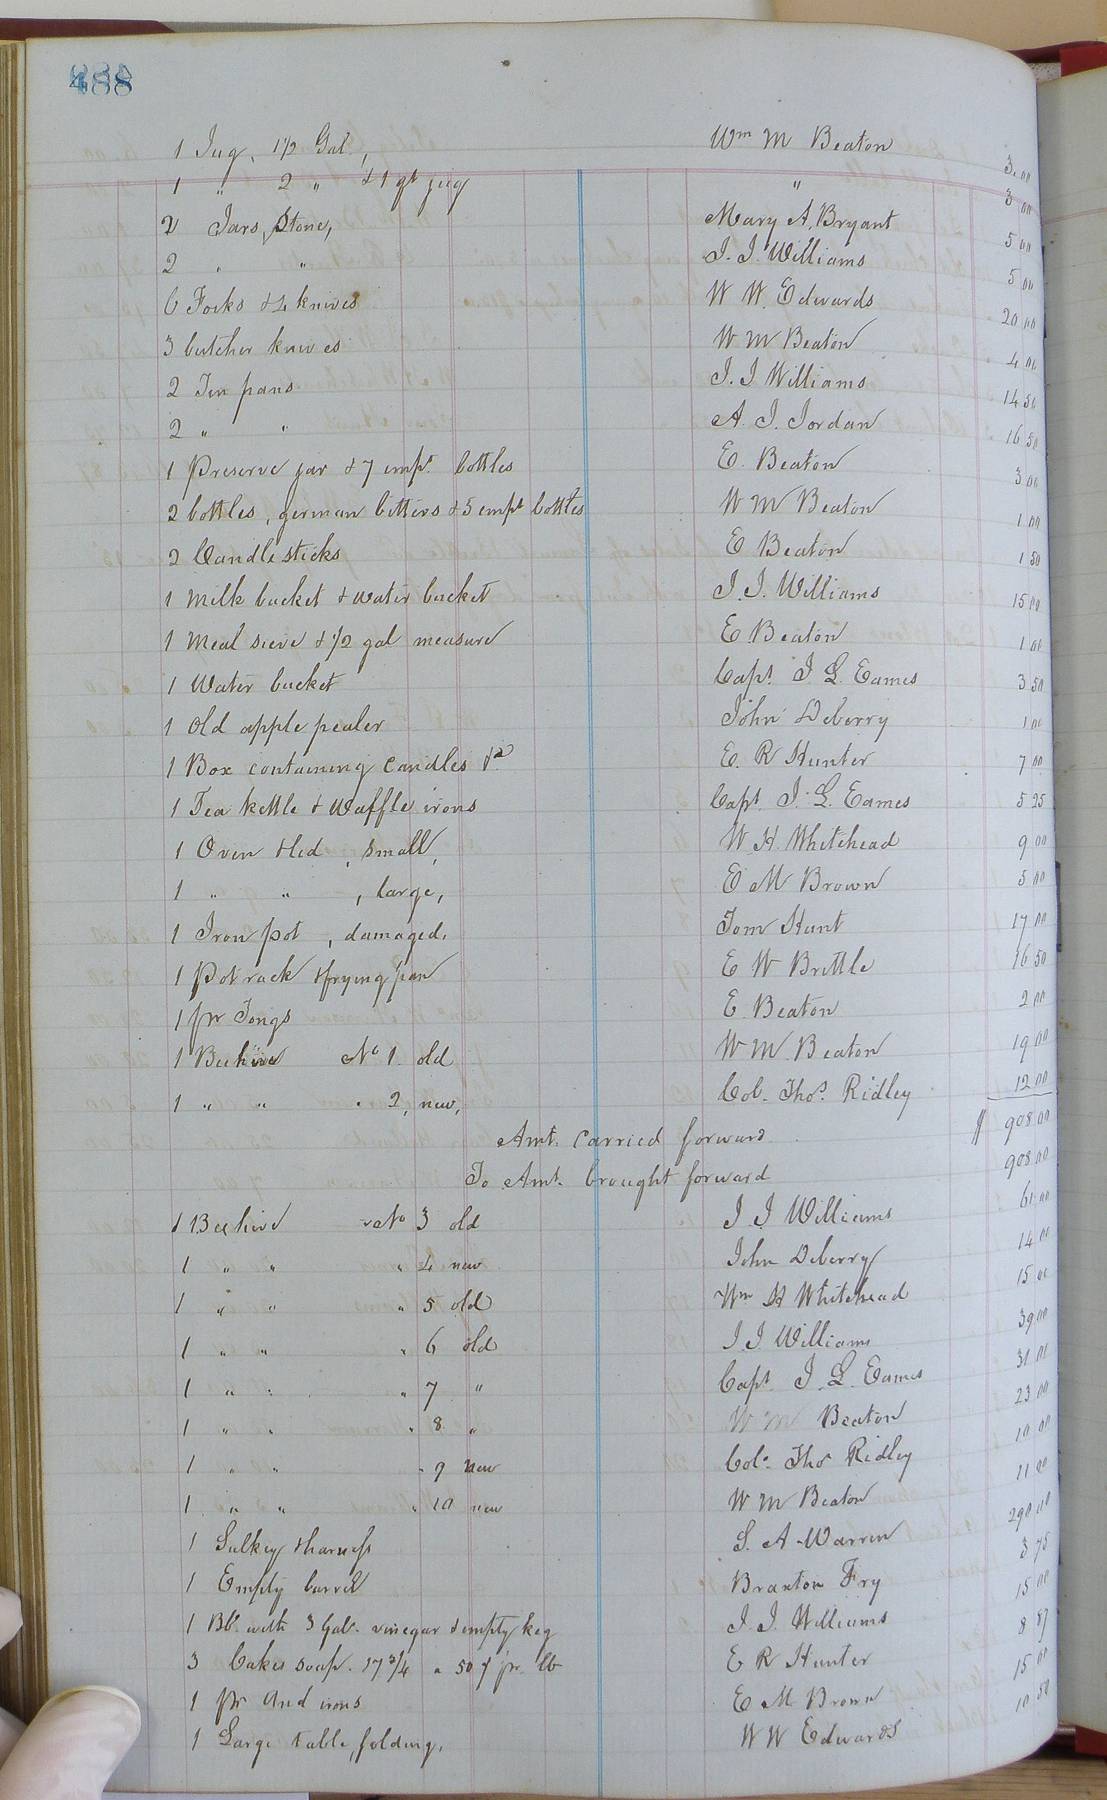 488
1 Jug, 1 1/2 Gal, Wm M Beaton 3.00
1 " 2 " & 1 qt jug " 3 00
2 Jars, Stone, Mary A. Bryant 5 00
2 " " J. J. Williams 5 00
6 Forks & 4 knives W W. Edwards 20 00
3 butcher knives W M Beaton 4 00
2 Tin pans J. J Williams 14 50
2 " " A. J. Jordan 16 50
1 Preserve jar & 7 empt. bottles E. Beaton 3 00
2 bottles, german bitters & 5 empt bottles W M Beaton 1 00
2 Candle sticks E Beaton 1 50
1 Milk bucket & water bucket J. J. Williams 15 00
1 Meal sieve & 1/2 gal measure E Beaton 1 00
1 Water bucket Capt. J L. Eames 3 50
1 Old apple pealer John Deberry 1 00
1 Box containing candles &c E. R Hunter 7 00
1 Tea kettle & Waffle irons Capt. J. L. Eames 5 25
1 Oven & lid, small, W. H. Whitehead 9 00
1 " " , large, E M Brown 5 00
1 Iron pot, damaged, Tom Hunt 17 00
1 Pot rack & frying pan E W Brittle 16 50
1 pr Tongs E. Beaton 2 00
1 Beehive No 1. old W M Beaton 19 00
1 " " " 2, new, Col. Thos. Ridley 12 00
Amt. carried forward $ 908 00
To Amt. brought forward 908 00
1 Beehive No 3 old J J Williams 61 00
1 " " " 4 new John Deberry 14 00
1 " " " 5 old Wm H Whitehead 15 00
1 " " " 6 old J. J Williams 39 00
1 " " " 7 " Capt. J. L. Eames 31 00
1 " " " 8 " W M Beaton 23 00
1 " " " 9 new Col. Thos Ridley 10 00
1 " " " 10 new W M Beaton 11 00
1 Sulkey & harness S. A Warren 290 00
1 Empty barrel Braxton Fry 3 75
1 Bbl. with 3 Gal. vinegar & empty keg J. J. Williams 15 00
3 Cakes soap. 17 3/4 a 50 ¢ pr. lb E R Hunter 8 87
1 pr And irons E M Brown 15 00
1 Large table, folding, W W Edwards 10 50